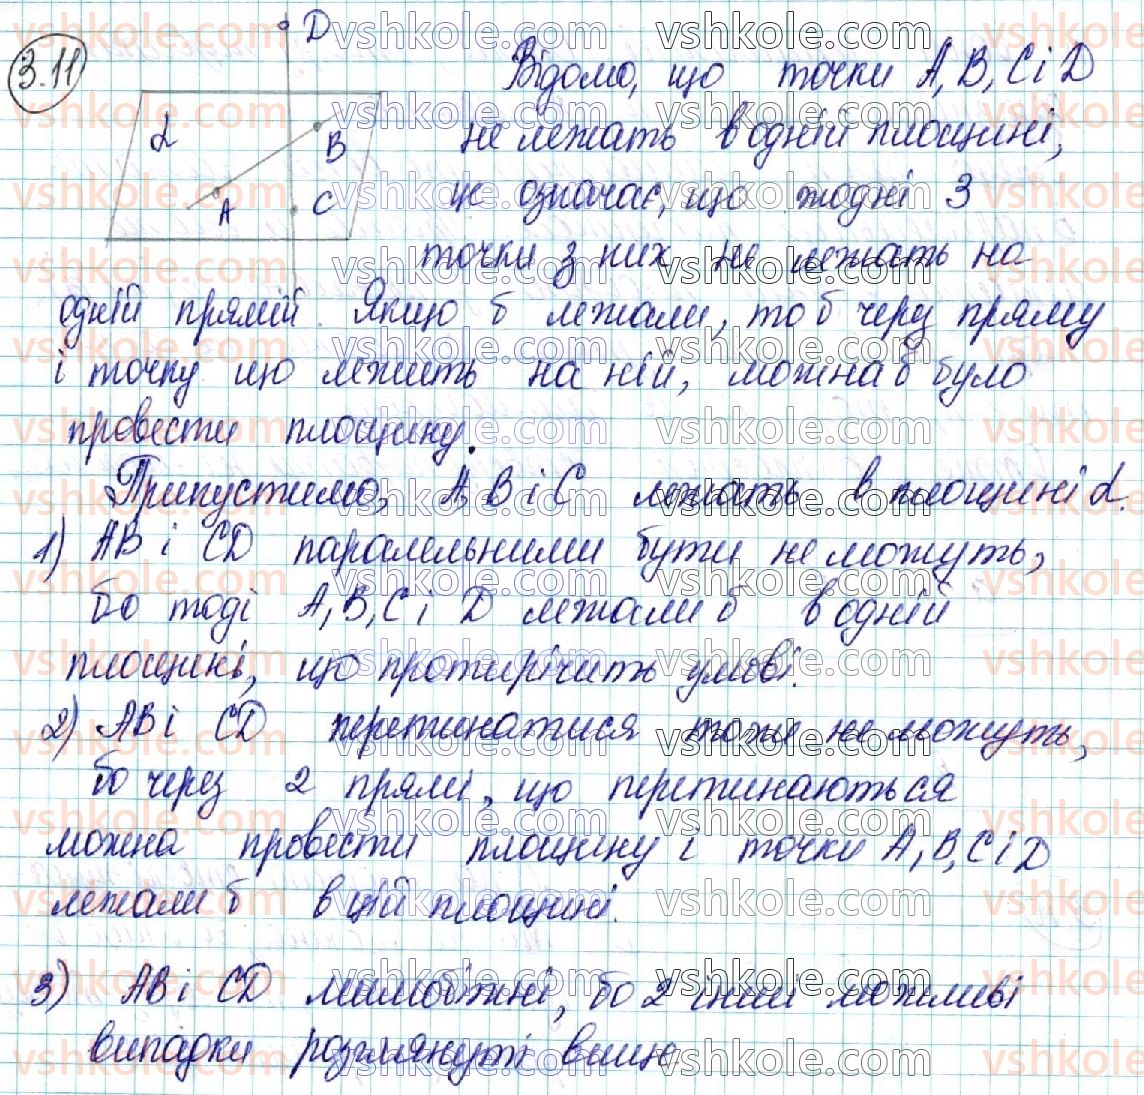 3.11
D
Відомо, що точки A, B, C і D
α
B
не лежать в одній площині,
A
C
це означає, що жодні 3
точки з них не лежать на
одній прямій. Якщо б лежали, то б через пряму
і точку що лежить на ній, можна б було
провести площину.
Припустимо, A, B і C лежать в площині α.
1) AB і CD паралельними бути не можуть,
бо тоді A, B, C і D лежали б в одній
площині, що протирічить умові.
2) AB і CD перетинатися тоже не можуть,
бо через 2 прямі, що перетинаються
можна провести площину і точки A, B, C і D
лежали б в цій площині.
3) AB і CD мимобіжні, бо 2 інші можливі
випадки розглянуті вище
vshkole.com